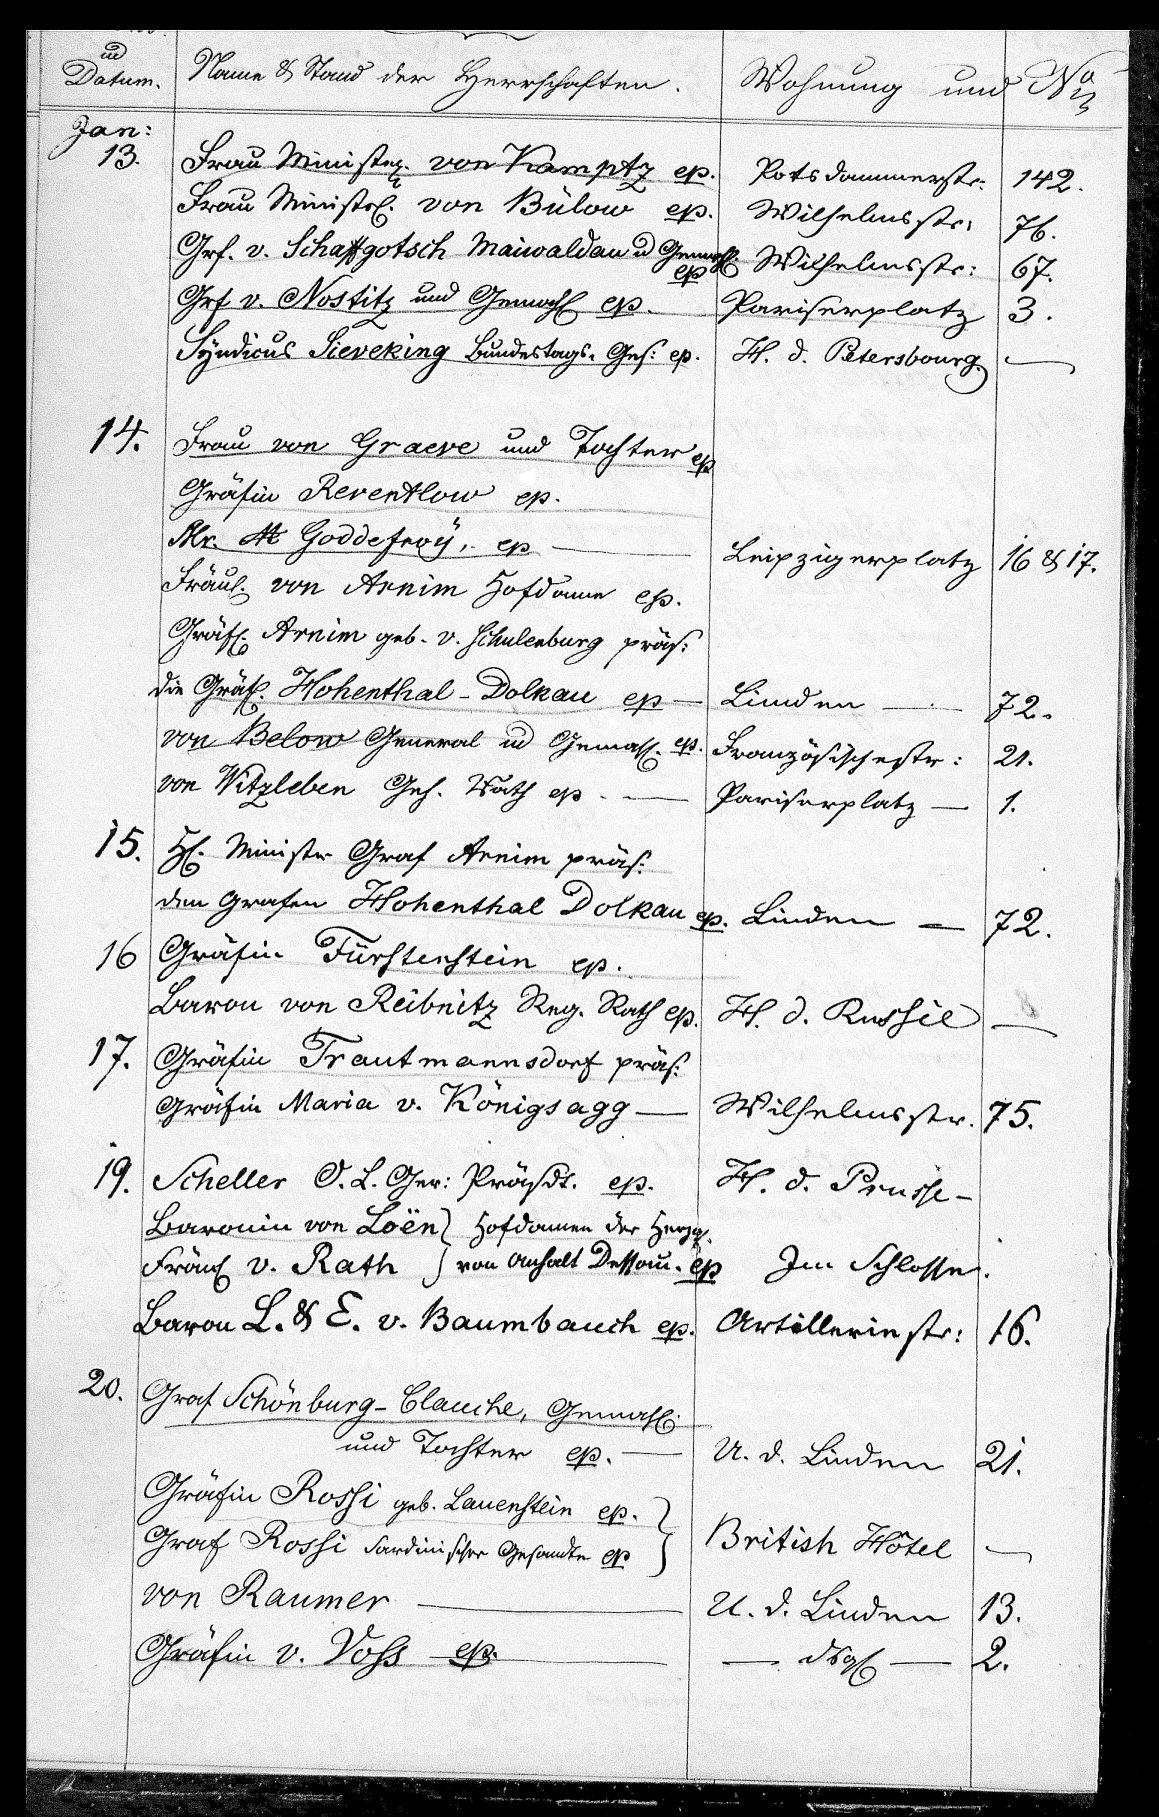 ud
Datum. Name & Stand der Herrschaften. Wohnung und No
Jan:
13. Frau Minister. von Kamptz ep. Potsdammerstr: 142.
Frau Ministr. von Bülow ep. Wilhelmsstr: 76.
Grf. v. Schaffgotsch Maiwaldau u Gemahl. ep Wilhelmsstr: 67.
Grf v. Nostitz und Gemahl ep. Pariserplatz 3.
Syndicus Sieveking Bundestags. Ges: ep. H. d. Petersbourg. —
14. Frau von Graeve und Tochter ep
Gräfin Reventlow ep.
Mr. Goddefroÿ, ep — Leipzigerplatz 16 & 17.
Fräul. von Arnim Hofdame ep.
Gräf. Arnim geb. v. Schulenburg präs:
die Gräf. Hohenthal-Dolkau ep — Linden — 72.
von Below General ud Gemahl. ep. Französischestr: 21.
von Witzleben Geh. Rath ep — Pariserplatz — 1.
15. H. Ministr Graf Arnim präs:
den Grafen Hohenthal Dolkau ep. Linden — 72.
16 Gräfin Fürstenstein ep.
Baron von Reibnitz Reg. Rath ep. H. d. Russie —
17. Gräfin Trautmannsdorf präs:
Gräfin Maria v. Königsagg — Wilhelmsstr. 75.
19. Scheller O. L. Ger: Präsdt. ep. H. d. Prusse –
Baronin von Loën } Hofdamen der Herzg.
Fräul v. Rath } von Anhalt Dessau. ep Im Schlosse.
Baron L. & E. v. Baumbauch ep. Artilleriestr: 16.
20. Graf Schönburg-Clauche, Gemahl.
und Tochter ep. — U. d. Linden 21.
Gräfin Rossi geb. Lauenstein ep. }
Graf Rossi Sardinischer Gesandte ep } British Hôtel —
von Raumer — U. d. Linden 13.
Gräfin v. Voss ep. — dsgl — 2.